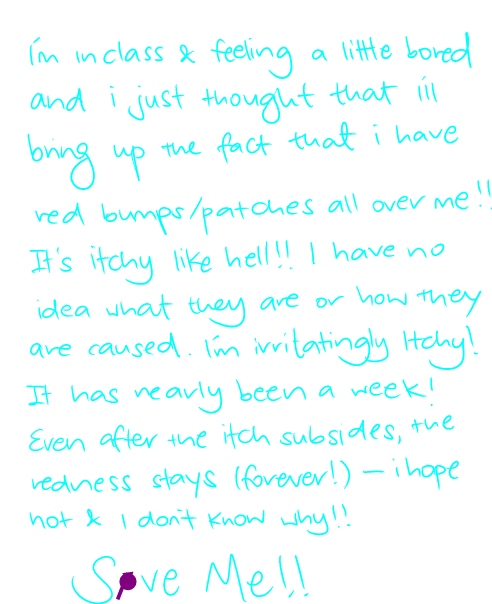 I'm in class & feeling a little bored
and i just thought that i'll
bring up the fact that i have
red bumps/patches all over me!!
It's itchy like hell!! I have no
idea what they are or how they
are caused. I'm irritatingly Itchy!
It has nearly been a week!
Even after the itch subsides, the
redness stays (forever!) – i hope
not & I don't know why!!
Save Me!!